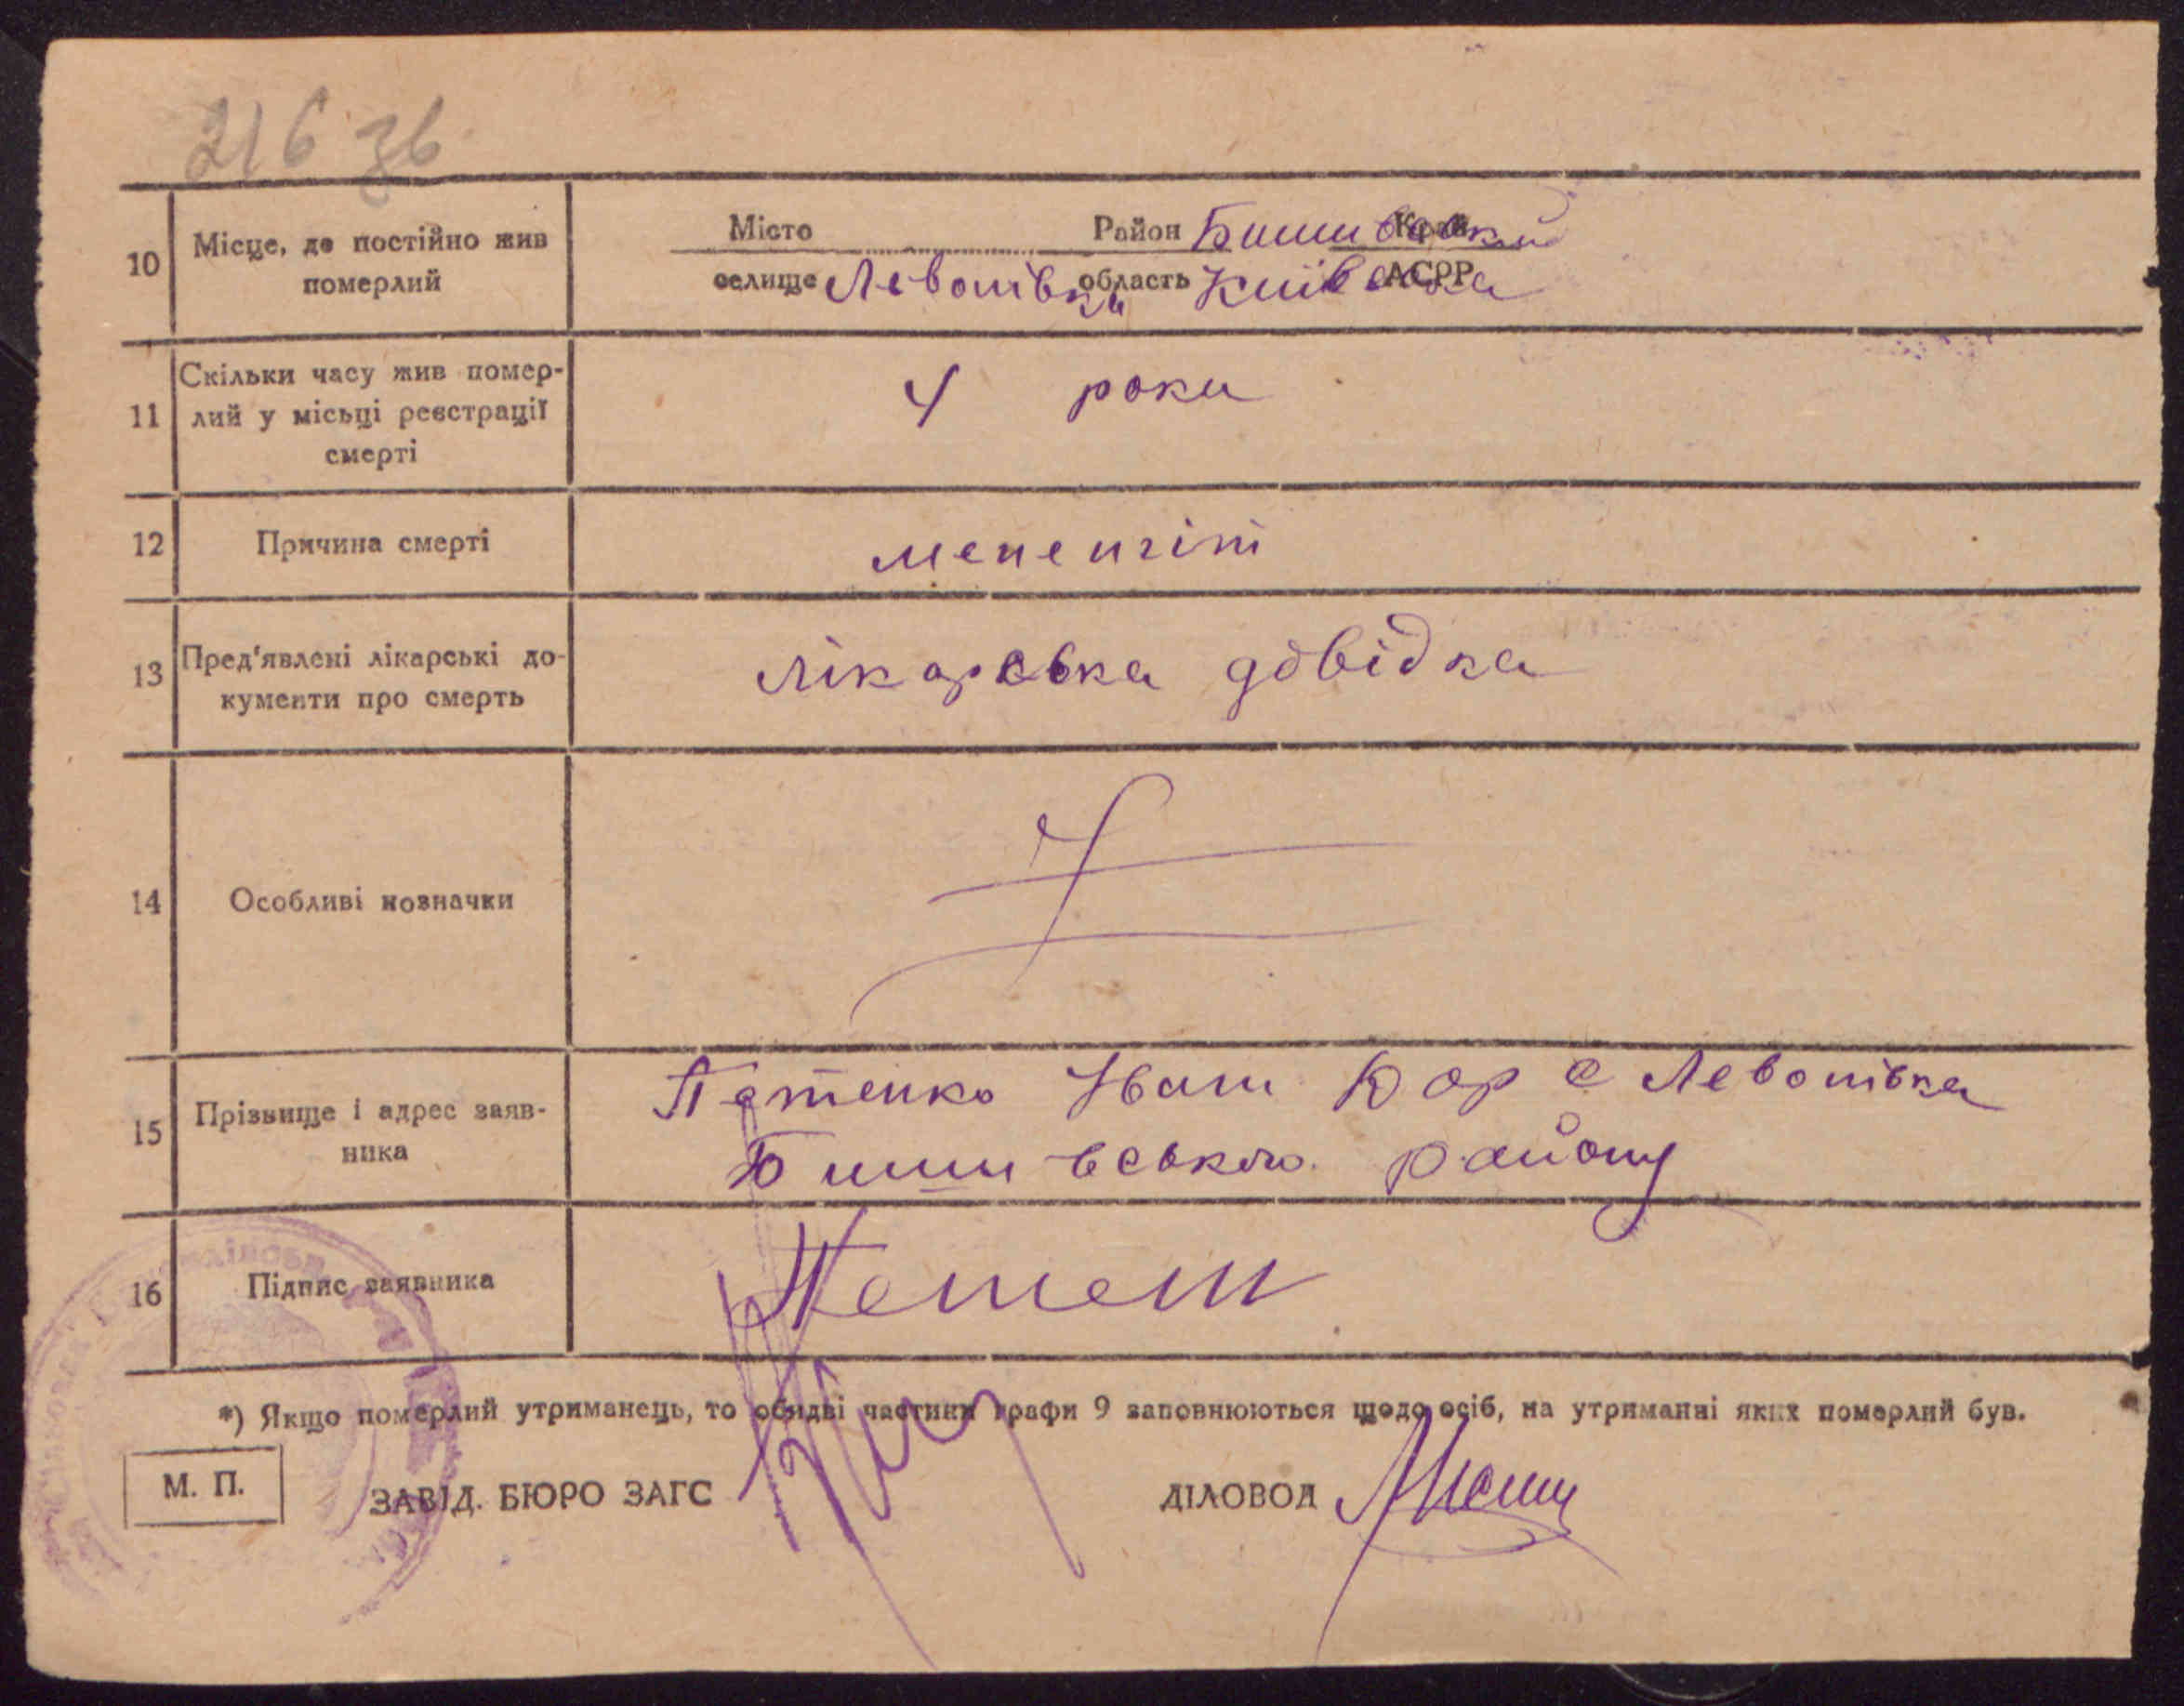 216 зв
10 Місце, де постійно жив померлий
Місто Район Бишівський Край
селище Левонівка область Київська АСРР
11 Скільки часу жив помер-
лий у місьці реєстрації
смерті
4 роки
12 Причина смерті
мененгіт
13 Пред'явлені лікарські до-
кументи про смерть
лікарська довідка
14 Особливі нозначки
15 Прізвище і адрес заяв-
ника
Іван с Левонівка
Бишивського району
16 Підпис заявника
*) Якщо померлий утриманець, то обидві частини графи 9 заповнюються щодо осіб, на утриманні яких померлий був.
М. П.
ЗАВІД. БЮРО ЗАГС ДІЛОВОД